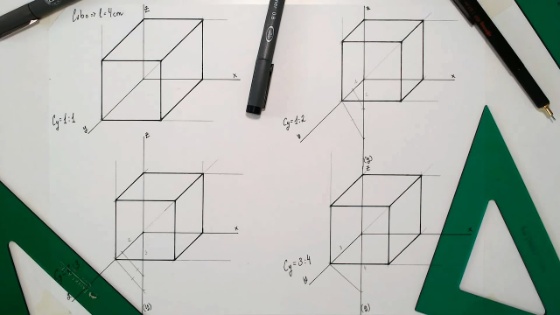 Cubo => l=4cm
z
x
Cy=1:1
y
z
x
Cy=1:2
y
(y)
z
x
y
(y)
z
x
Cy=3:4
y
(y)